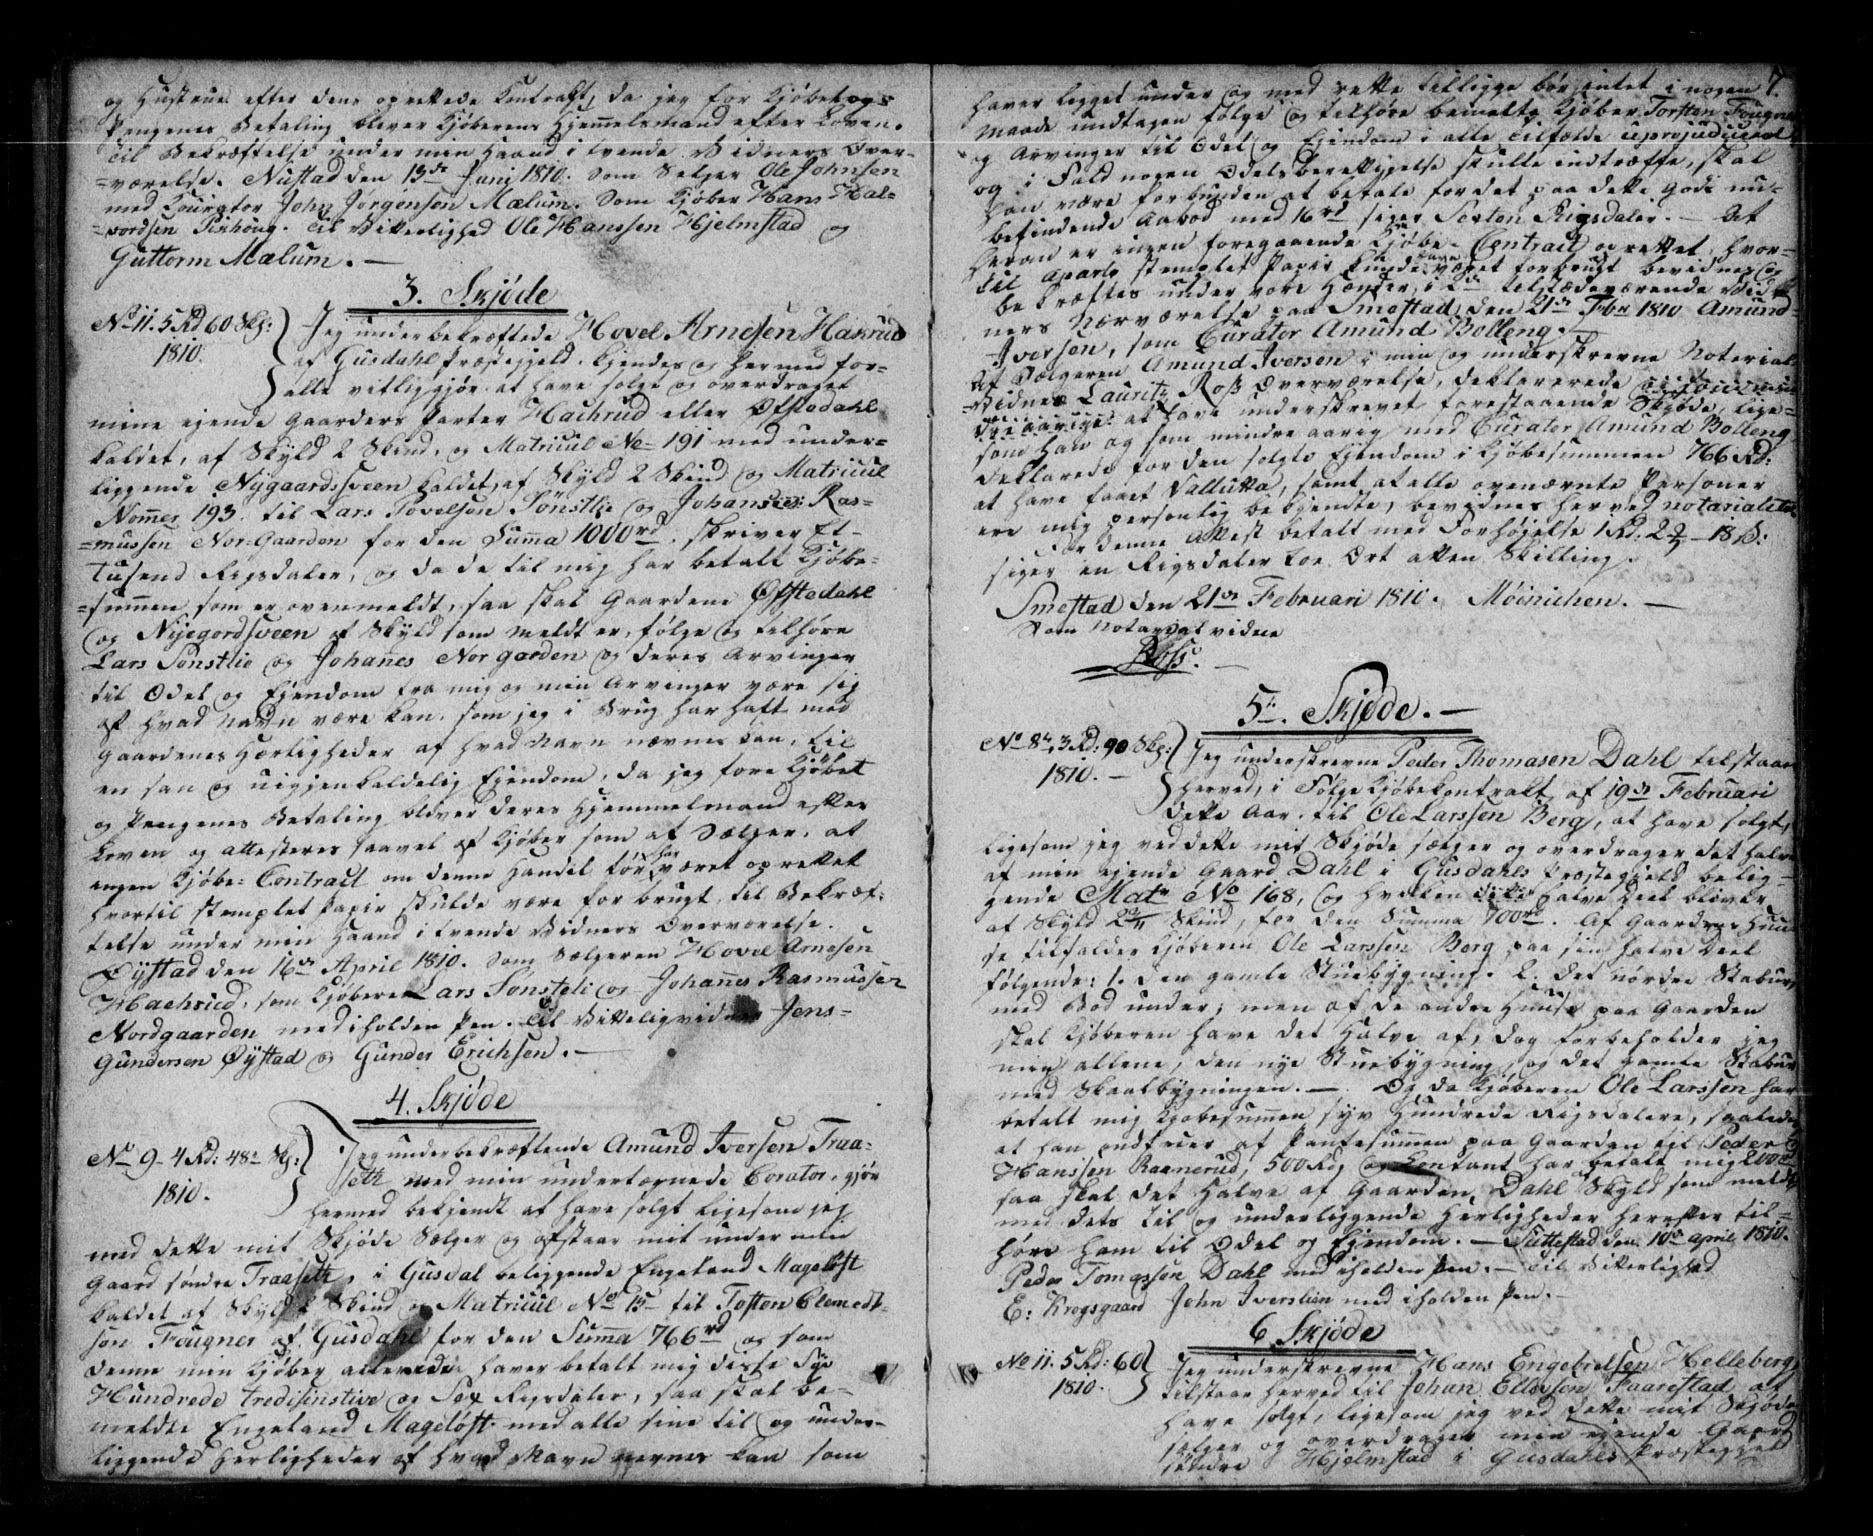 og Hustrue efter dens oprettede Contract, da jeg for Kjøbet og
Pengenes Betaling bliver Kjøberens Hjemmelsmand efter Loven.
Til Bekræftelse under min Haand i tvende Vidners Over-
=værelse. Nustad den 13de Juni 1810. Som Selger Ole Johnsen
med Kurator John Jorgensen Mælum. Som Kjøber Hans Hal-
=vordsen Pixhoug. Til Vitterlighed Ole Hanssen Hjelmstad og
Guttorm Mælum. —
3. Skjøde
No 11. 5 Rd 60 Skj:
1810.
Jeg underbekræftede Hovel Arnesen Haxrud
af Gusdahl Præstegjeld. Kjendes og hermed for-
alle vitterliggjør at have solgt og overdraget
mine eyende Gaarders Parter Hachrud eller Ofstedahl
kaldet, af Skyld 2 Skind, og Matricul No 191 med under-
liggende Nygaardssveen kaldet, af Skyld 2 Skind og Matricul
Nommer 193. til Lars Povelsen Sønstlie og Johannes Ras-
=mussen Nor-Gaarden for den Summa 1000 rd. skriver Et-
Tusend Rigsdaler, og da de til mig har betalt Kjøbe-
=summen som er ovenmeldt, saa skal Gaardene Øfstedahl
og Nijegordsveen af Skyld som meldt er, følge og tilhøre
Lars Sønstlie og Johannes Norgarden og deres Arvinger
til Odel og Ejendom fra mig og min Arvinger være sig
af hvad Navn være kan. som jeg i Brug har haft med
Gaardenes Herligheder af hvad Navn nævnes kan, til
en san og uigjenkaldelig Ejendom, da jeg fore Kjøbet
og Pengenes Betaling bliver deres Hjemmelsmand efter
Loven og attesteres saavel af Kjøber som af Sælger, at
ingen Kjøbe-Contract om denne Handel før har været oprettet
hvortil stemplet Papir skulde være forbrugt, til Bekræf-
telse under min Haand i tvende Vidners Overværelse.
Øystad den 16de April 1810. Som Sælgeren Hovel Arnesen
Hachrud, som Kjøbere Lars Sønsteli og Johannes Rasmussen
Nordgaarden med iholden Pen. Til Vitteligvidner Jens-
Gundersen Øystad og Gunder Erichsen. —
4. Skjøde
No 9 - 4 Rd: 48 Skj:
1810.
Jeg underbekræftende Amund Iversen Traa-
seth med min undertegnede Corator, gjør
hermed bekjendt at have solgt ligesom jeg
med dette mit Skjøde Sælger og afstaar mit under min
Gaard søndre Traaseth, i Gusdal beliggende Engeland Magelöst
kaldet af Skyld Skind og Matricul No 15 til Tosten Clemedt-
søn Fougner af Gusdahl for den Summa 766 rd og som
denne min Kjøber allerede haver betalt mig disse Syv
Hundrede tredisinstive og Sex Rigsdaler, saa skal be-
meldte Engeland Magelöst med alle sine til og under-
liggende Herligheder af hvad Navn nevnes kan som
haver ligget under og med rette tilligge bør intet i nogen
Maade undtagen følge og tilhøre bemelte Kjøber Torsten Fougner
og Arvinger til Odel og Ejendom i alle Tilfælde uprojudiceret
og i Fald nogen Odelsberettigelse skulle indtræffe, skal
han være forbunden at betale for det paa dette Gods nu-
befindende Aabod med 16 rd siger Sexten Rigsdaler. — At
heron er ingen foregaaende Kjøbe-Contract oprettet, hvor-
til aparte stemplet Papir kunde have været forbrugt bevidnes og
bekræftes under vore Hænder i 2de tilstædeværende Vid-
ners Nærværelse paa Smestad, den 21de Fbr 1810 Amund
Iversen, som Curator Amund Bolleng. —
At Sælgeren Amund Iversen i min og underskrevne Noterial
Vidnes Lauritz Ross Overværelse, deklarerede
at have underskrevet forestaaende Skjøde, lige-
som han og som mindre aarig med Curator Amund Bolleng
deklarede for den solgte Ejendom i Kjøbesummen 766 Rd:
at have faaet Vallutta, samt at alle ovenævnte Personer
ere mig personlig bekjendte, bevidnes herved notarialiter
for denne Attest betalt med Forhøjelse 1 Rd. 2 - 18 s:
siger en Rigsdaler toe Ort atten Skilling.
Smestad den 21de Februari 1810. Møinichen. —
Som Notarial vidne
Ross. —
5te. Skjøde. —
No 8te, 3 Rd: 90 Skj:
1810. —
Jeg underskrevne Peder Thomasen Dahl tilstaar
herved, i Følge Kjøbekontrakt af 19de Februari
dette Aar til Ole Larssen Berg, at have solgt,
ligesom jeg ved dette mit Skjøde sælger og overdrager det halve
af min ejende Gaard Dahl i Gusdahls Præstegjeld belig-
gende Matr No 168, og hvilken halve Deel bliver
af Skyld Skind, for den Summa 700 rd. Af Gaardens Huu-
se tilfalder Kjøberen Ole Larssen Berg paa sin halve Deel
følgende: 1. Den gamle Stuebygning. 2. Det nordre Stabur,
med Bod under; men af de andre Huuse paa Gaarden
skal Kjøberen have det Halve af, dog forbeholder jeg
mig allene, den nye Stuebygning, og det gamle Stabur
med Skaalbygningen. — Og da Kjøberen Ole Larssen har
betalt mig Kjøbesummen syv Hundrede Rigsdalere, saaledes
at han indfrier af Pantesummen paa Gaarden til Peder
Hanssen Raanerud, 500 Rdl og Contant har betalt mig 200 rd
saa skal det Halve af Gaarden, Dahl Skyld som meldt
med dets til og underliggende Herligheder herefter til-
høre ham til Odel og Ejendom. — Suttestad den 10de april 1810.
Peder Tomassen Dahl med iholden Pen. — Til Vitterlighed
E: Krogsgaard John Iverslien med iholden Pen. —
6 Skjøde
No 11. 5 Rd: 60
1810.
Jeg underskrevne Hans Engebretsen Helleberg
tilstaar herved til Johan Ellefsen Faarestad at
have solgt, ligesom jeg ved dette mit Skjøde
sælger og overdrager min ejende Gaard
søndre Hjelmstad i Gusdahls Præstegjeld